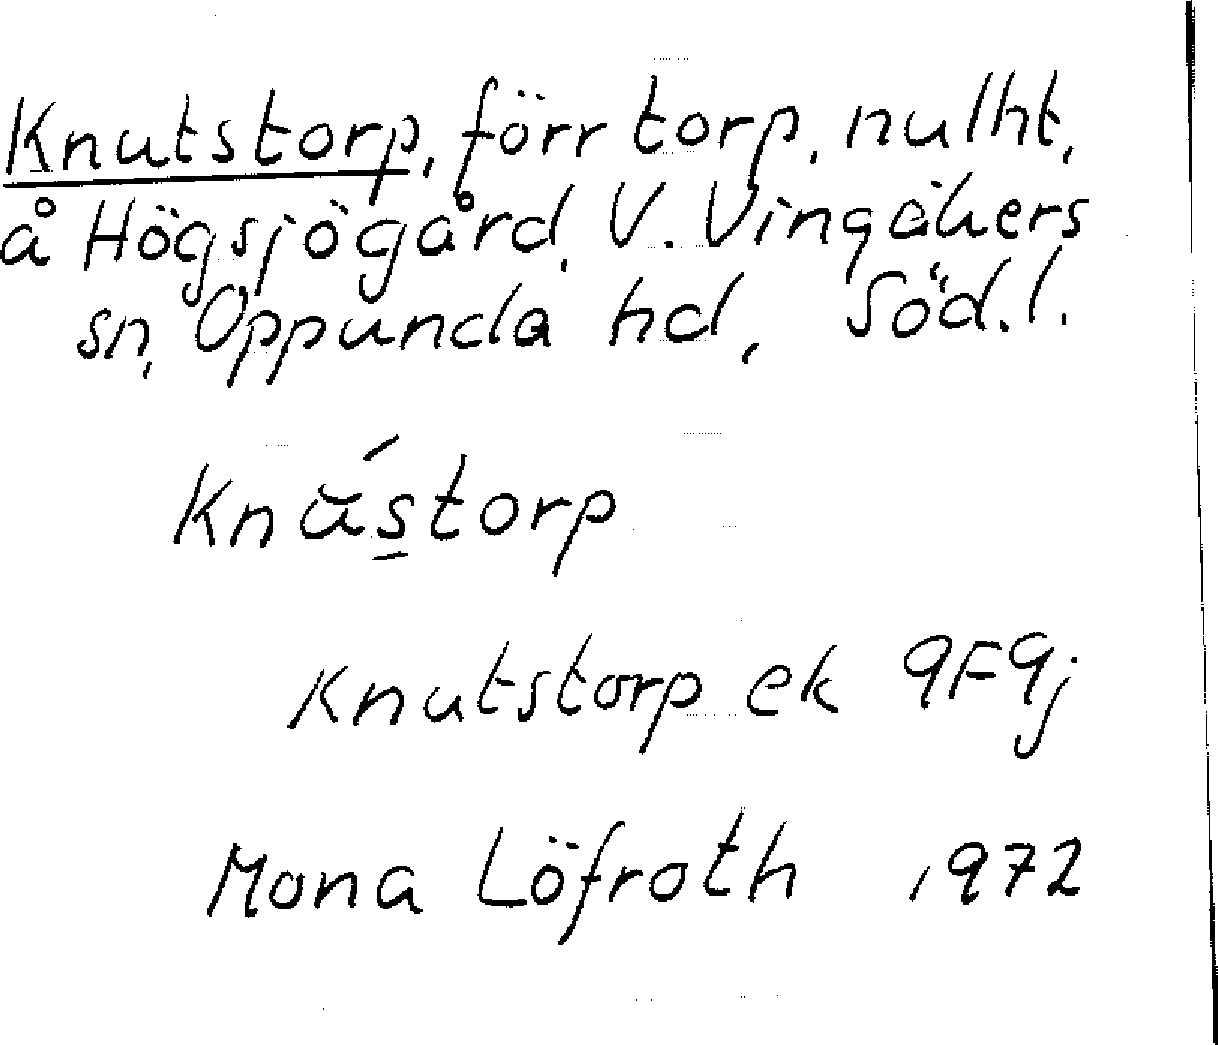 Knutstorp, förr torp, nu lht,
å Högsjögård, V. Vingåkers
sn, Oppunda hd, Söd.l.
Knústorp
Knutstorp ek 9F9j
Mona Löfroth 1972